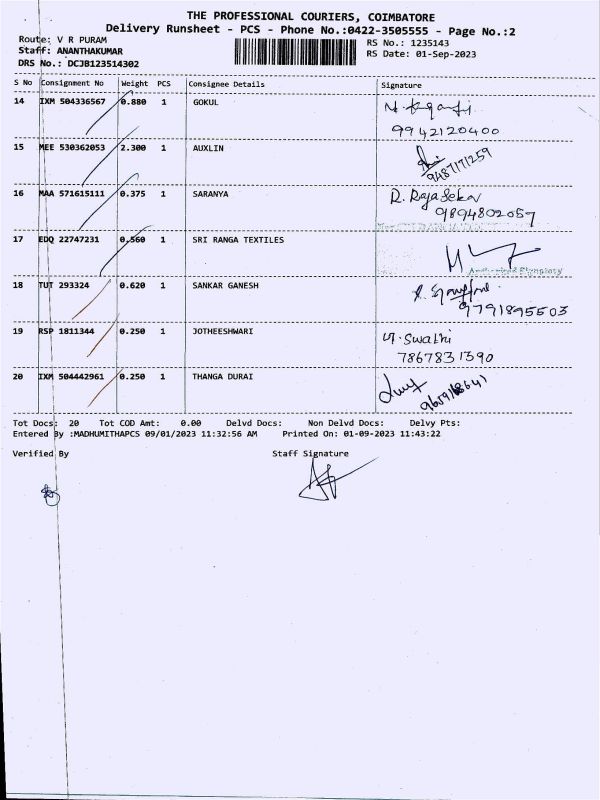 THE PROFESSIONAL COURIERS, COIMBATORE
Delivery Runsheet - PCS - Phone No.:0422-3505555 - Page No.:2
Route: V R PURAM
RS No.: 1235143
Staff: ANANTHAKUMAR
RS Date: 01-Sep-2023
DRS No.: DCJB123514302
S No Consignment No Weight PCS Consignee Details Signature
14 IXM 504336567 0.880 1 GOKUL
9942120400
15 MEE 530362053 2.300 1 AUXLIN
9487171259
16 MAA 571615111 0.375 1 SARANYA R. Rajasekar
9894802057
17 EDQ 22747231 0.560 1 SRI RANGA TEXTILES
Authorised Signatory
18 TUT 293324 0.620 1 SANKAR GANESH
9791895503
19 RSP 1811344 0.250 1 JOTHEESHWARI Swathi
7867831390
20 IXM 504442961 0.250 1 THANGA DURAI
Tot Docs: 20 Tot COD Amt: 0.00 Delvd Docs: Non Delvd Docs: Delvy Pts:
Entered By :MADHUMITHAPCS 09/01/2023 11:32:56 AM Printed On: 01-09-2023 11:43:22
Verified By Staff Signature